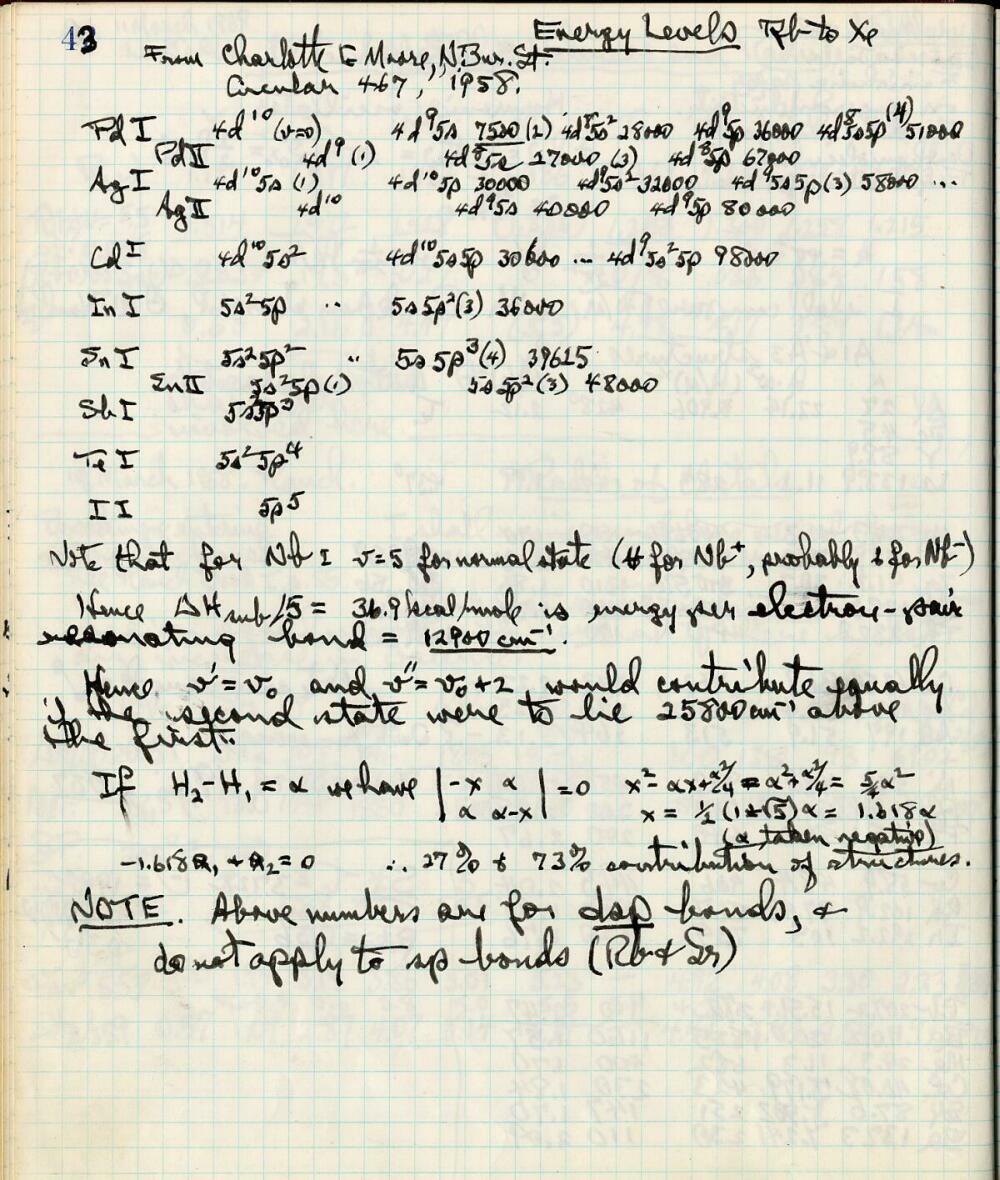 43
Energy Levels Rb to Xe
From Charlotte E Moore, N.Bur.St.
Circular 467, 1958.
Pd I 4d¹⁰ (v=0) 4d⁹5s 7500 (2) 4d⁸5s² 28000 4d⁹5p 36000 4d⁸5s5p (4) 51000
Pd II 4d⁹ (1) 4d⁸5s 27000 (3) 4d⁸5p 67000
Ag I 4d¹⁰5s (1) 4d¹⁰5p 30000 4d⁹5s² 32000 4d⁹5s5p (3) 58000 ...
Ag II 4d¹⁰ 4d⁹5s 40000 4d⁹5p 80000
Cd I 4d¹⁰5s² 4d¹⁰5s5p 30600 ... 4d⁹5s²5p 98000
In I 5s²5p .. 5s5p²(3) 36000
Sn I 5s²5p² .. 5s5p³(4) 39615
Sn II 5s²5p (1) 5s5p² (3) 48000
Sb I 5s²5p³
Te I 5s²5p⁴
I I 5p⁵
Note that for Nb I v=5 for normal state (4 for Nb⁺, probably 6 for Nb⁻)
Hence ΔH sub/5 = 36.9 kcal/mole is energy per electron-pair
resonating bond = 12900 cm⁻¹.
Hence v' = v₀ and v'' = v₀+2 would contribute equally
if the second state were to lie 25800 cm⁻¹ above
the first.
If H₂-H₁ = α we have | -x α | = 0 x² - αx + α²/4 = α² + α²/4 = 5/4 α²
| α α-x | x = ½(1+√5)α = 1.618α
(α taken negative)
-1.618 a₁ + a₂ = 0 ∴ 27% & 73% contribution of structures.
NOTE. Above numbers are for dsp bonds, &
do not apply to sp bonds (Rb & Sr)